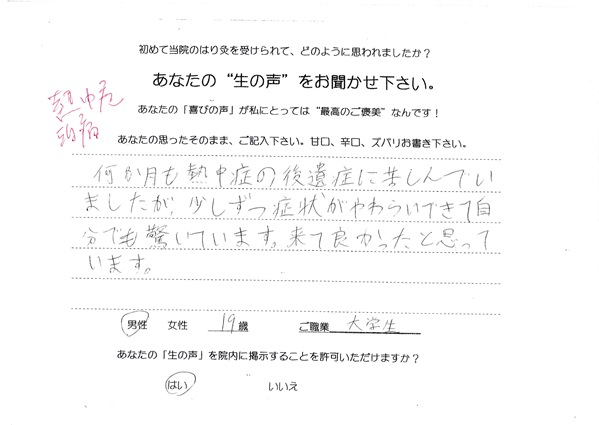 初めて当院のはり灸を受けられて、どのように思われましたか？
あなたの“生の声”をお聞かせ下さい。
熱中症
頭痛
あなたの「喜びの声」が私にとっては“最高のご褒美”なんです！
あなたの思ったそのまま、ご記入下さい。甘口、辛口、ズバリお書き下さい。
何か月も熱中症の後遺症に苦しんでい
ましたが、少しずつ症状がやわらいできて自
分でも驚いています。来て良かったと思って
います。
男性 女性 19歳 ご職業 大学生
あなたの「生の声」を院内に掲示することを許可いただけますか？
はい いいえ